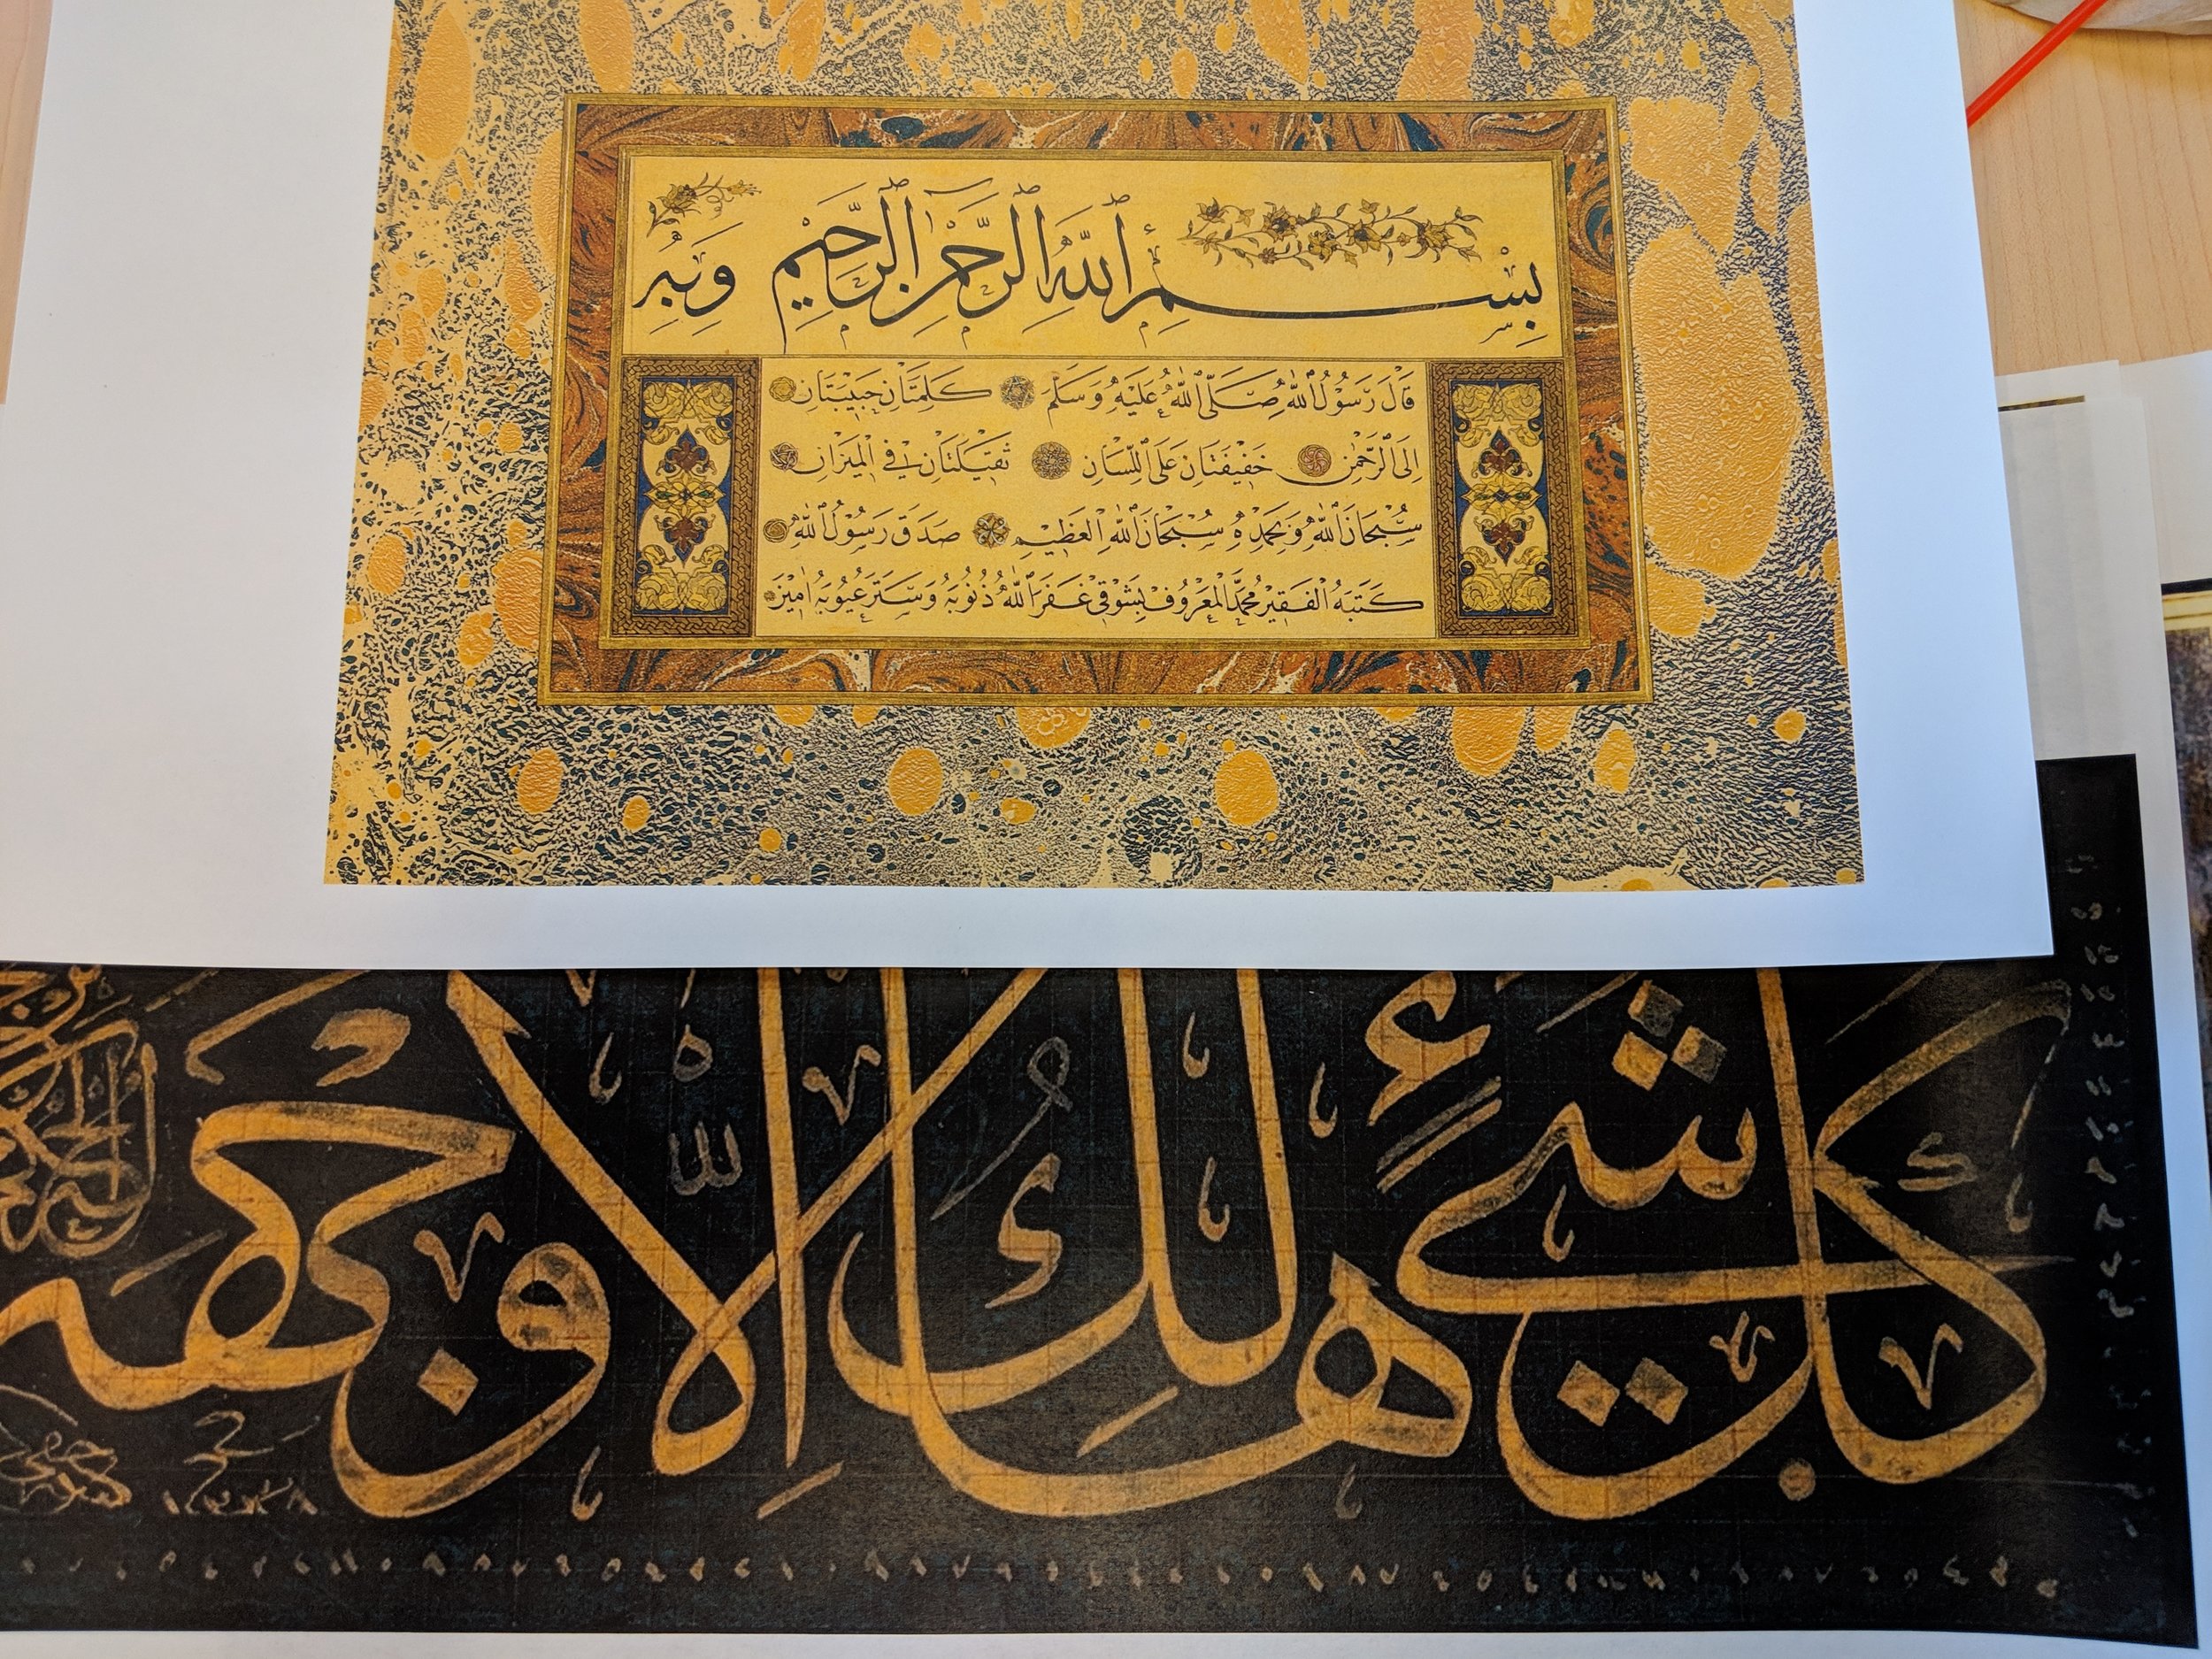 بِسْمِ ٱللَّهِ ٱلرَّحْمٰنِ ٱلرَّحِيمِ وَبِهِ
قَالَ رَسُولُ ٱللَّهِ صَلَّى ٱللَّهُ عَلَيْهِ وَسَلَّمَ كَلِمَتَانِ حَبِيبَتَانِ
إِلَى ٱلرَّحْمٰنِ خَفِيفَتَانِ عَلَى ٱللِّسَانِ ثَقِيلَتَانِ فِي ٱلْمِيزَانِ
سُبْحَانَ ٱللَّهِ وَبِحَمْدِهِ سُبْحَانَ ٱللَّهِ ٱلْعَظِيمِ صَدَقَ رَسُولُ ٱللَّهِ
كَتَبَهُ ٱلْفَقِيرُ مُحَمَّدُ ٱلْمَعْرُوفُ بِشَوْقِي غَفَرَ ٱللَّهُ ذُنُوبَهُ وَسَتَرَ عُيُوبَهُ اٰمِينَ
كل شيء هالك إلا وجهه